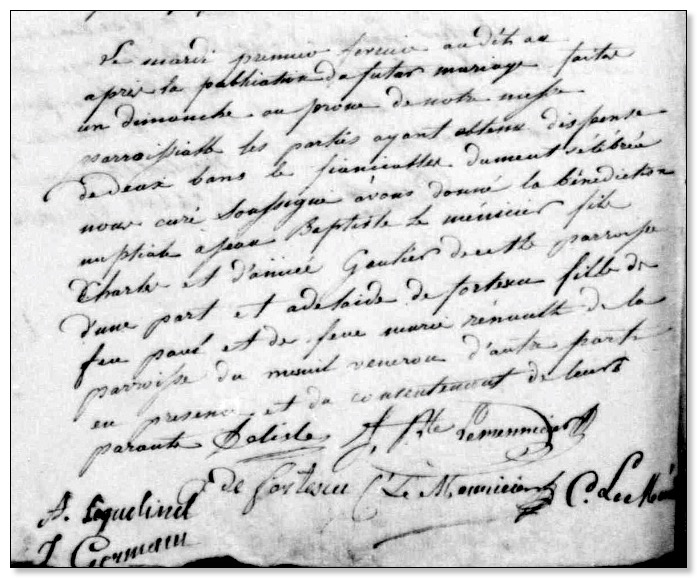 Le mardi premier fevrier audit an
après la publication du futur mariage faite
un dimanche au prone de notre messe
parroissiale les parties ayant obtenu dispense
de deux bans le fiancailles dument célébrée
nous curé soussigné avons donné la bénédiction
nuptiale a jean Baptiste le ménicier fils
Charles et d'aimée Gautier de cette parroisse
d'une part et adelaide de fortescu fille de
feu paul et de feue marie rénault de la
parroisse du mesnil venerou d'autre part
en presence et du consentement de leurs
parents Delisle J. Bte Lemennicier
de fortescu C. Le Monnicier C. Le
A. Loquelinel
J Germain